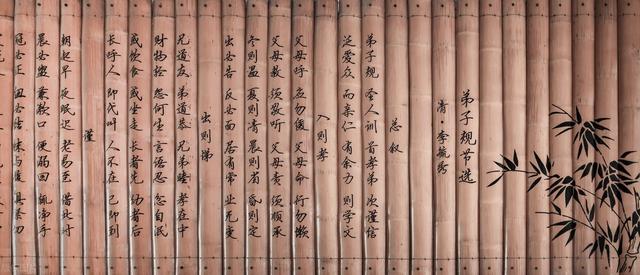 弟子规节选
清·李毓秀
总叙
弟子规 圣人训 首孝弟 次谨信
泛爱众 而亲仁 有余力 则学文
入则孝
父母呼 应勿缓 父母命 行勿懒
父母教 须敬听 父母责 须顺承
冬则温 夏则清 晨则省 昏则定
出必告 反必面 居有常 业无变
出则悌
兄道友 弟道恭 兄弟睦 孝在中
财物轻 怨何生 言语忍 忿自泯
或饮食 或坐走 长者先 幼者后
长呼人 即代叫 人不在 己即到
谨
朝起早 夜眠迟 老易至 惜此时
晨必盥 兼漱口 便溺回 辄净手
冠必正 纽必结 袜与履 俱紧切